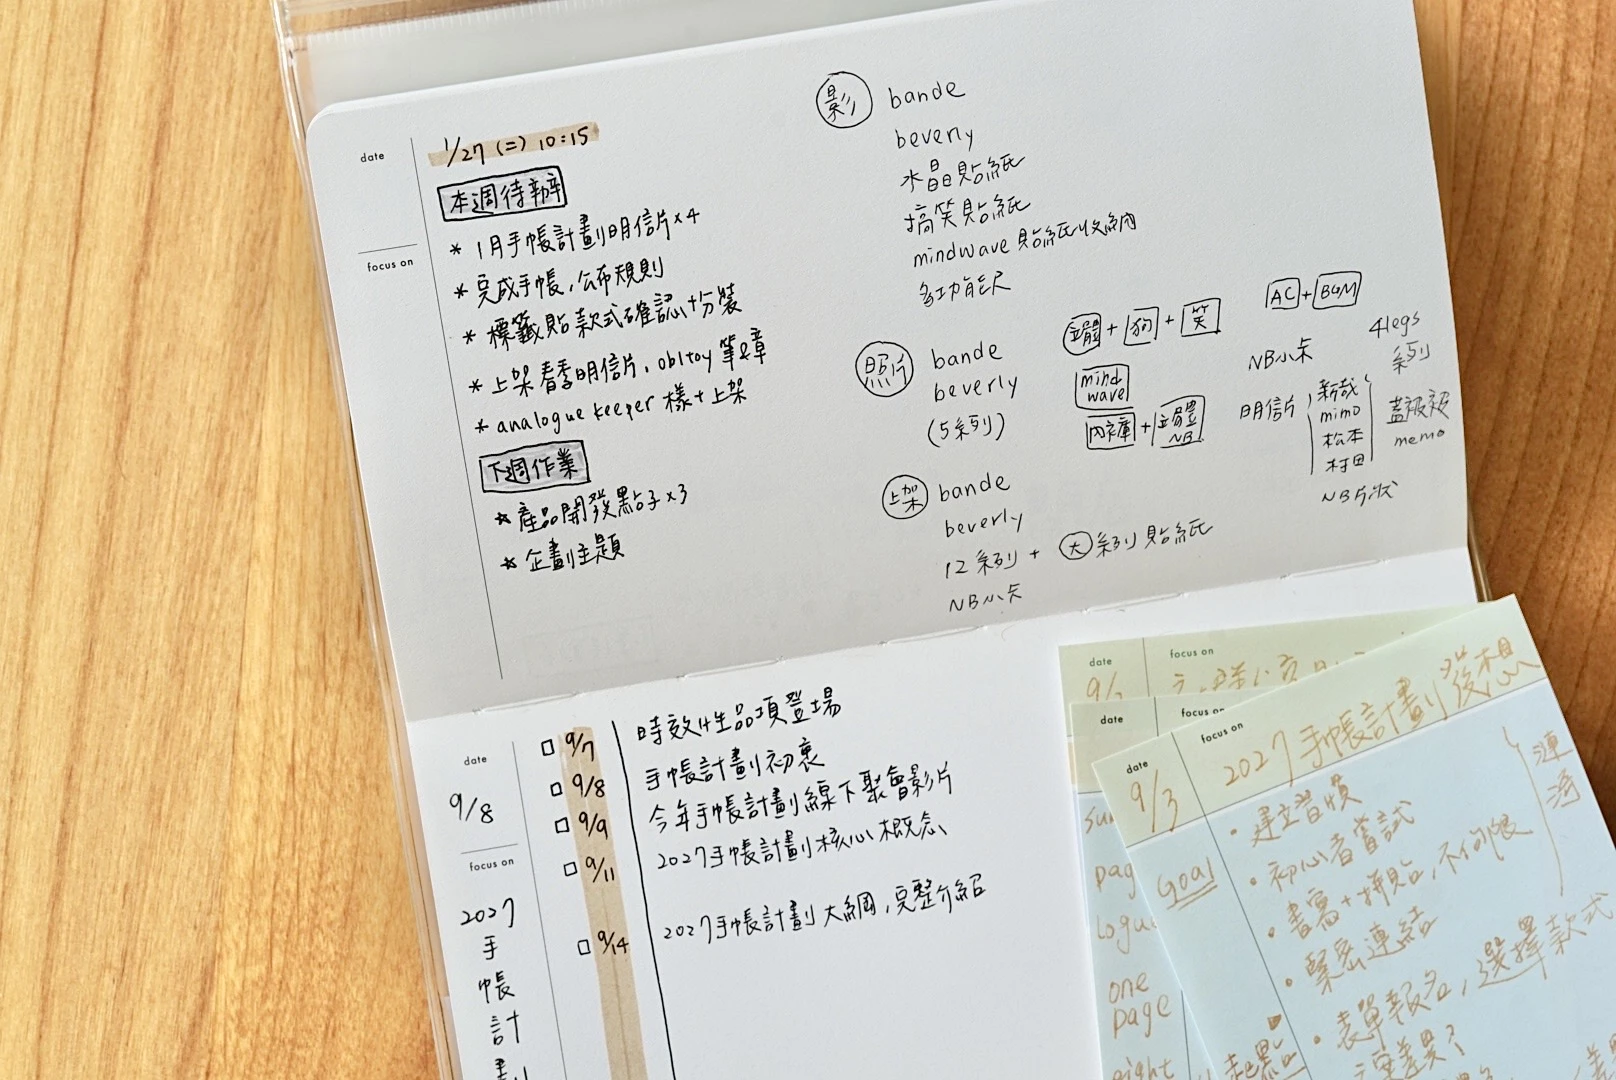 date
1/27 (二) 10:15
focus on
本週待辦
* 1月手帳計劃明信片×4
* 完成手帳,公布規則
* 標籤貼款式確認+分裝
* 上架春季明信片、obltoy 筆&章
* analogue keeper 樣+上架
下週作業
* 產品開發點子×3
* 企劃主題
影 bande
beverly
水晶貼紙
搞笑貼紙
mindwave 貼紙收納
多功能尺
照片 bande
beverly
(5系列)
立體 + 狗 + 笑
mind
wave
內褲 + 立體
NB
AC + BGM
NB小卡
明信片
新哉
mimo
松本
村田
NB形狀
4legs
系列
蓋被被
memo
上架 bande
beverly
12系列 + 大系列貼紙
NB小卡
date
9/8
focus on
2027
手
帳
計
劃
□ 9/7 時效性品項登場
□ 9/8 手帳計劃初衷
□ 9/9 今年手帳計劃線下聚會影片
□ 9/11 2027手帳計劃核心概念
□ 9/14 2027手帳計劃大綱,完整介紹
date
focus on
date
focus on
pag
one
page
date
9/3
focus on
2027 手帳計劃發想
Goal
・建立習慣
・初心者嘗試
・書寫+拼貼,不侷限
・緊密連結
・表單報名,選擇款式
起點